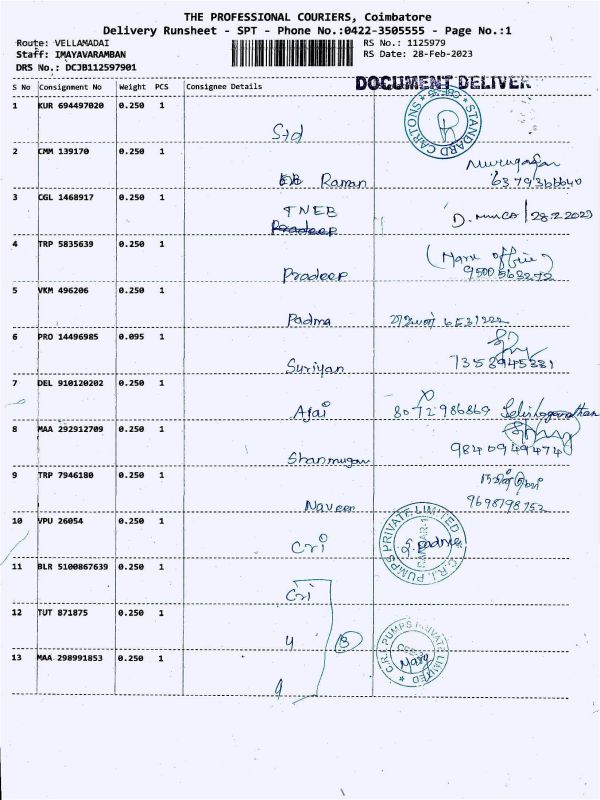 THE PROFESSIONAL COURIERS, Coimbatore
Delivery Runsheet - SPT - Phone No.:0422-3505555 - Page No.:1
Route: VELLAMADAI
RS No.: 1125979
Staff: IMAYAVARAMBAN
RS Date: 28-Feb-2023
DRS No.: DCJB112597901
DOCUMENT DELIVER
S No Consignment No Weight PCS Consignee Details
1 KUR 694497020 0.250 1 Std
STANDARD CARTONS
2 CMM 139170 0.250 1 Raman
3 CGL 1468917 0.250 1 TNEB
Pradeep
D. 28.2.2023
4 TRP 5835639 0.250 1 Pradeep
9500563272
5 VKM 496206 0.250 1 Padma
6 PRO 14496985 0.095 1 Suriyan
7358945381
7 DEL 910120202 0.250 1 Ajai 8072986869
8 MAA 292912709 0.250 1 Shanmugam
9840949474
9 TRP 7946180 0.250 1 Naveen
9698798752
10 VPU 26054 0.250 1 Cri
C.R.I. PUMPS PRIVATE LIMITED
11 BLR 5100867639 0.250 1 Cri
12 TUT 871875 0.250 1 4 3
C.R.I. PUMPS PRIVATE LIMITED
13 MAA 298991853 0.250 1 4